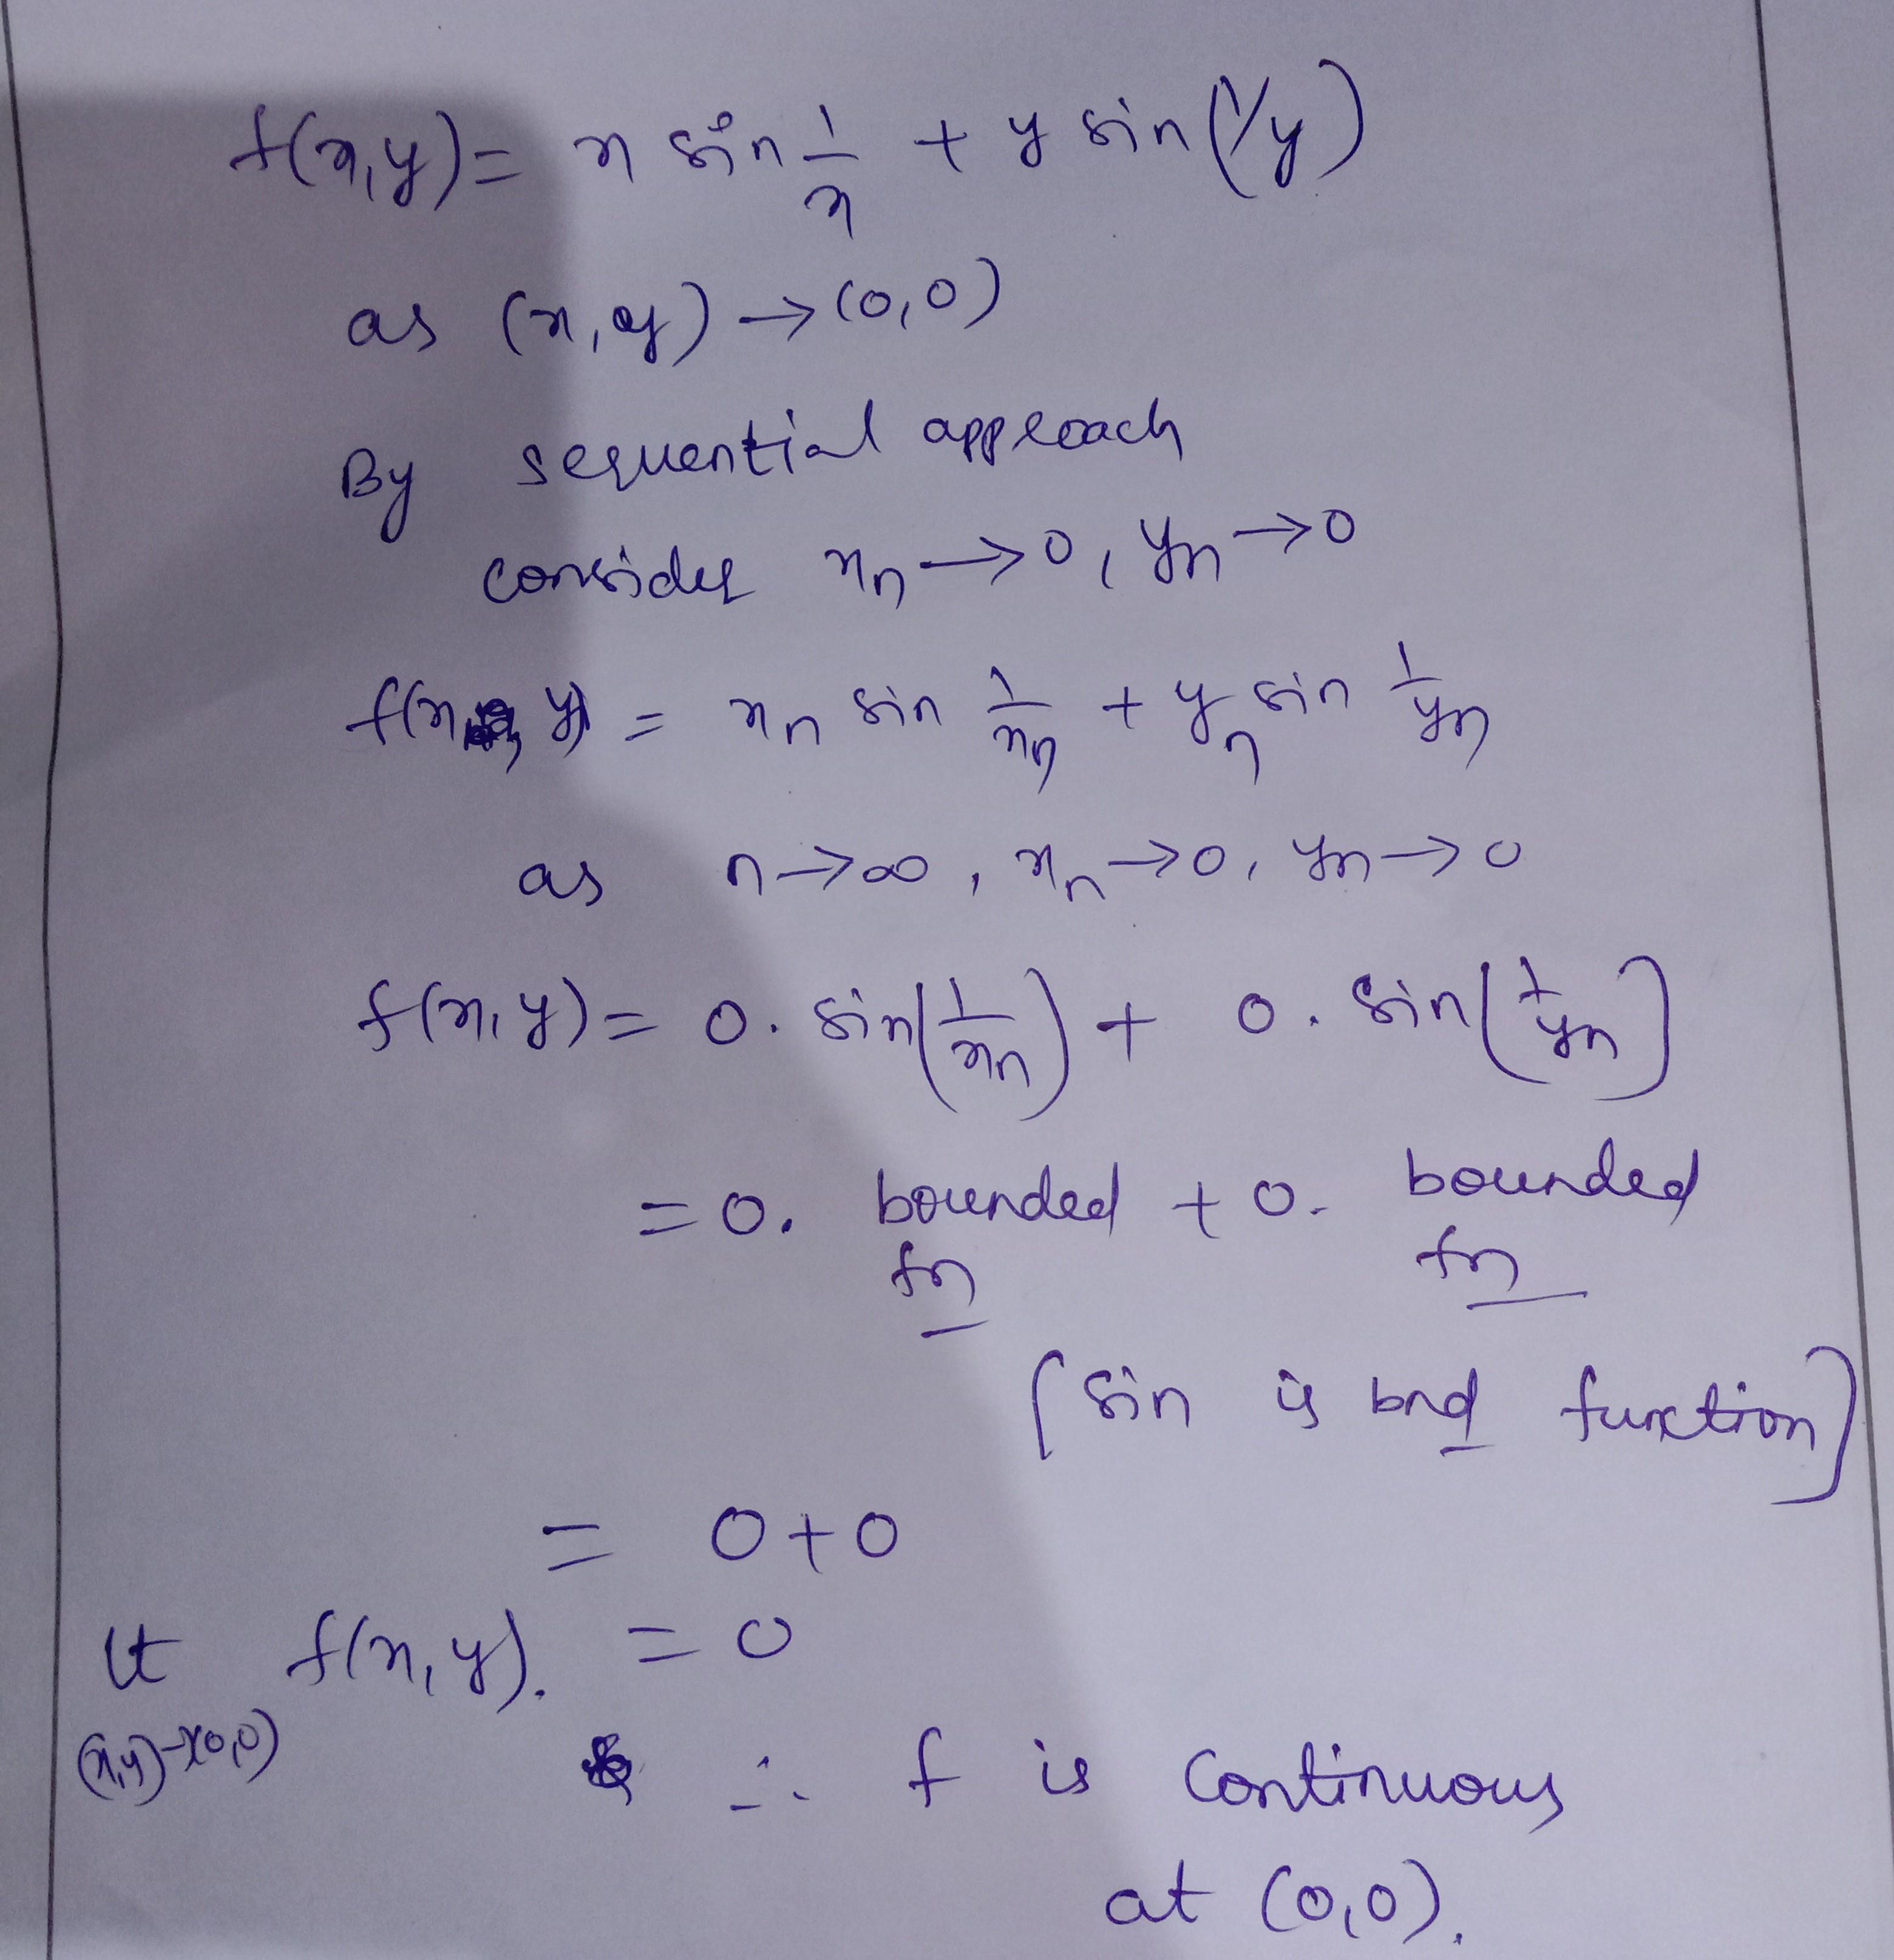 f(x,y) = x sin 1/x + y sin(1/y)
as (x,y) → (0,0)
By sequential approach
consider xn → 0, yn → 0
f(x, y) = xn sin 1/xn + yn sin 1/yn
as n → ∞, xn → 0, yn → 0
f(x,y) = 0. sin(1/xn) + 0. sin(1/yn)
= 0. bounded fn + 0. bounded fn
(sin is bnd function)
= 0+0
lt (x,y)→(0,0) f(x,y). = 0
∴ f is continuous
at (0,0).